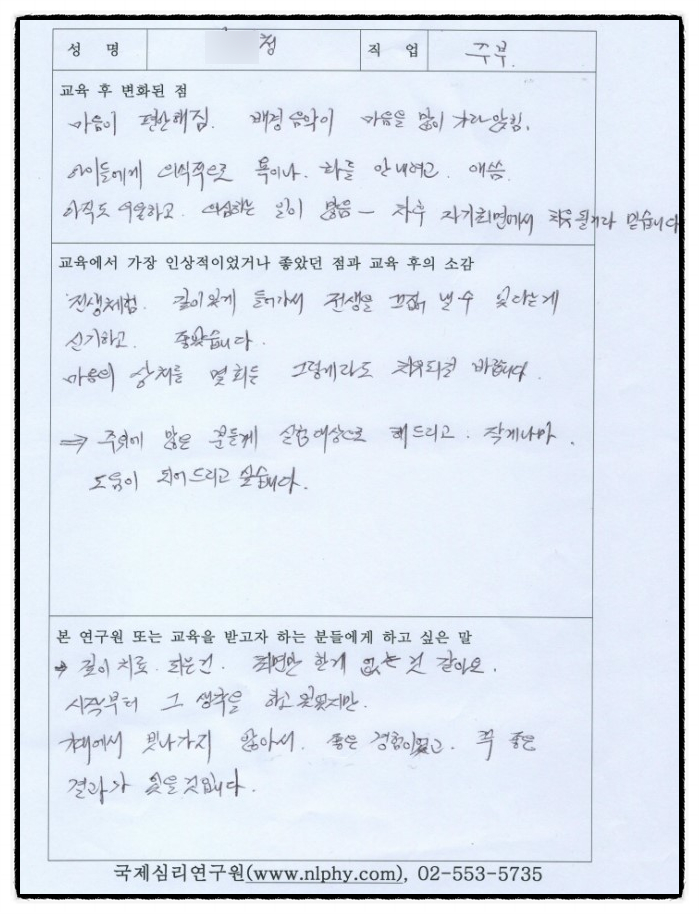 성 명 청 직 업 주부.
교육 후 변화된 점
마음이 편안해짐. 배경음악이 마음을 많이 가라앉힘.
아이들에게 의식적으로 욕이나. 화를 안내려고. 애씀.
아직도 우울하고. 의심하는 일이 많음 - 차후 자기최면에서 치유될거라 믿습니다
교육에서 가장 인상적이었거나 좋았던 점과 교육 후의 소감
전생체험. 깊이있게 들어가서 전생을 끄집어 낼 수 있다는게
신기하고. 좋았습니다.
마음의 상처를 몇회든 그렇게라도 치유되길 바랍니다.
⇒ 주위에 많은 분들께 실험대상으로 해드리고. 작게나마.
도움이 되어드리고 싶습니다.
본 연구원 또는 교육을 받고자 하는 분들에게 하고 싶은 말
→ 깊이 치료. 되는건. 최면만 한게 없는 것 같아요.
시작부터 그 생각을 하고 있었지만.
빗나가지 않아서. 좋은 경험이었고. 꼭 좋은
결과가 있을것입니다.
국제심리연구원(www.nlphy.com), 02-553-5735